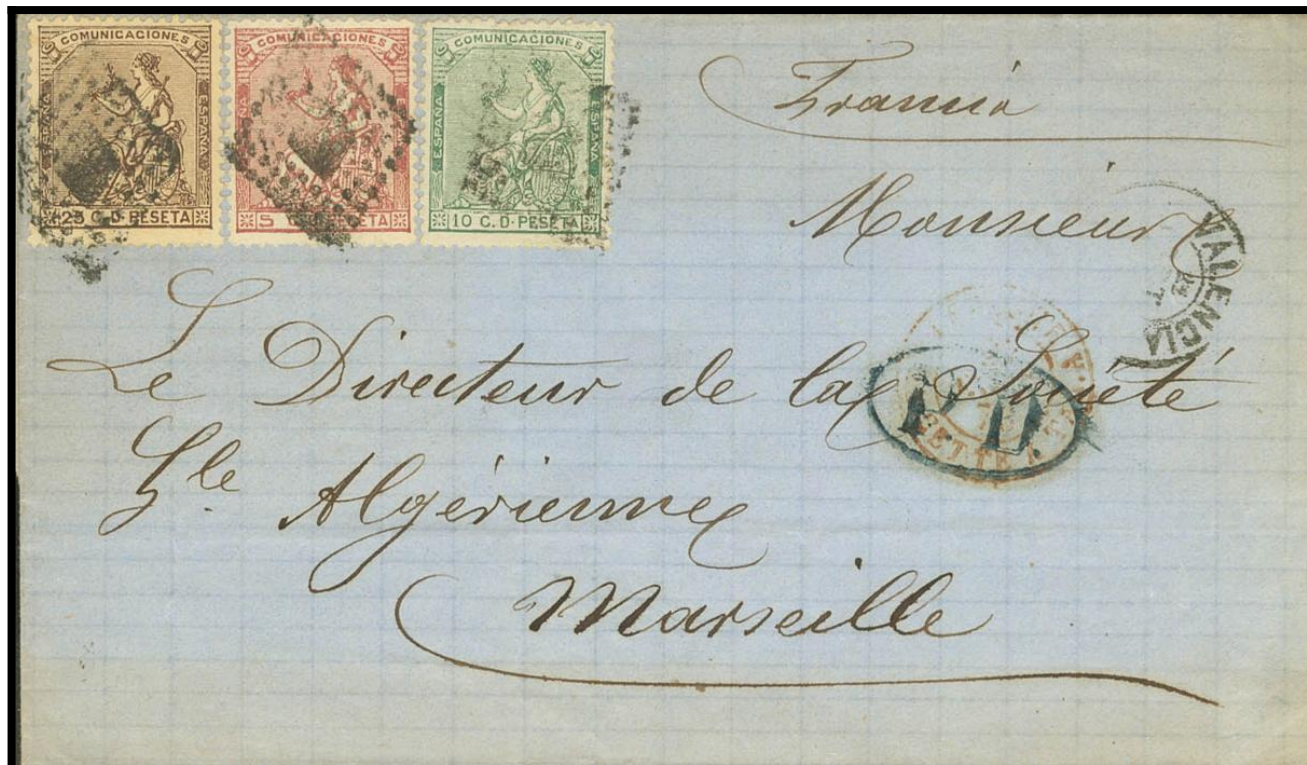 COMUNICACIONES
ESPAÑA
25 C. D. PESETA
COMUNICACIONES
ESPAÑA
5 PESETA
COMUNICACIONES
ESPAÑA ESPAÑA
10 C. D. PESETA
Francia
Monsieur
VALENCIA
Le Directeur de la Société
P. D.
Gle Algérienne
Marseille